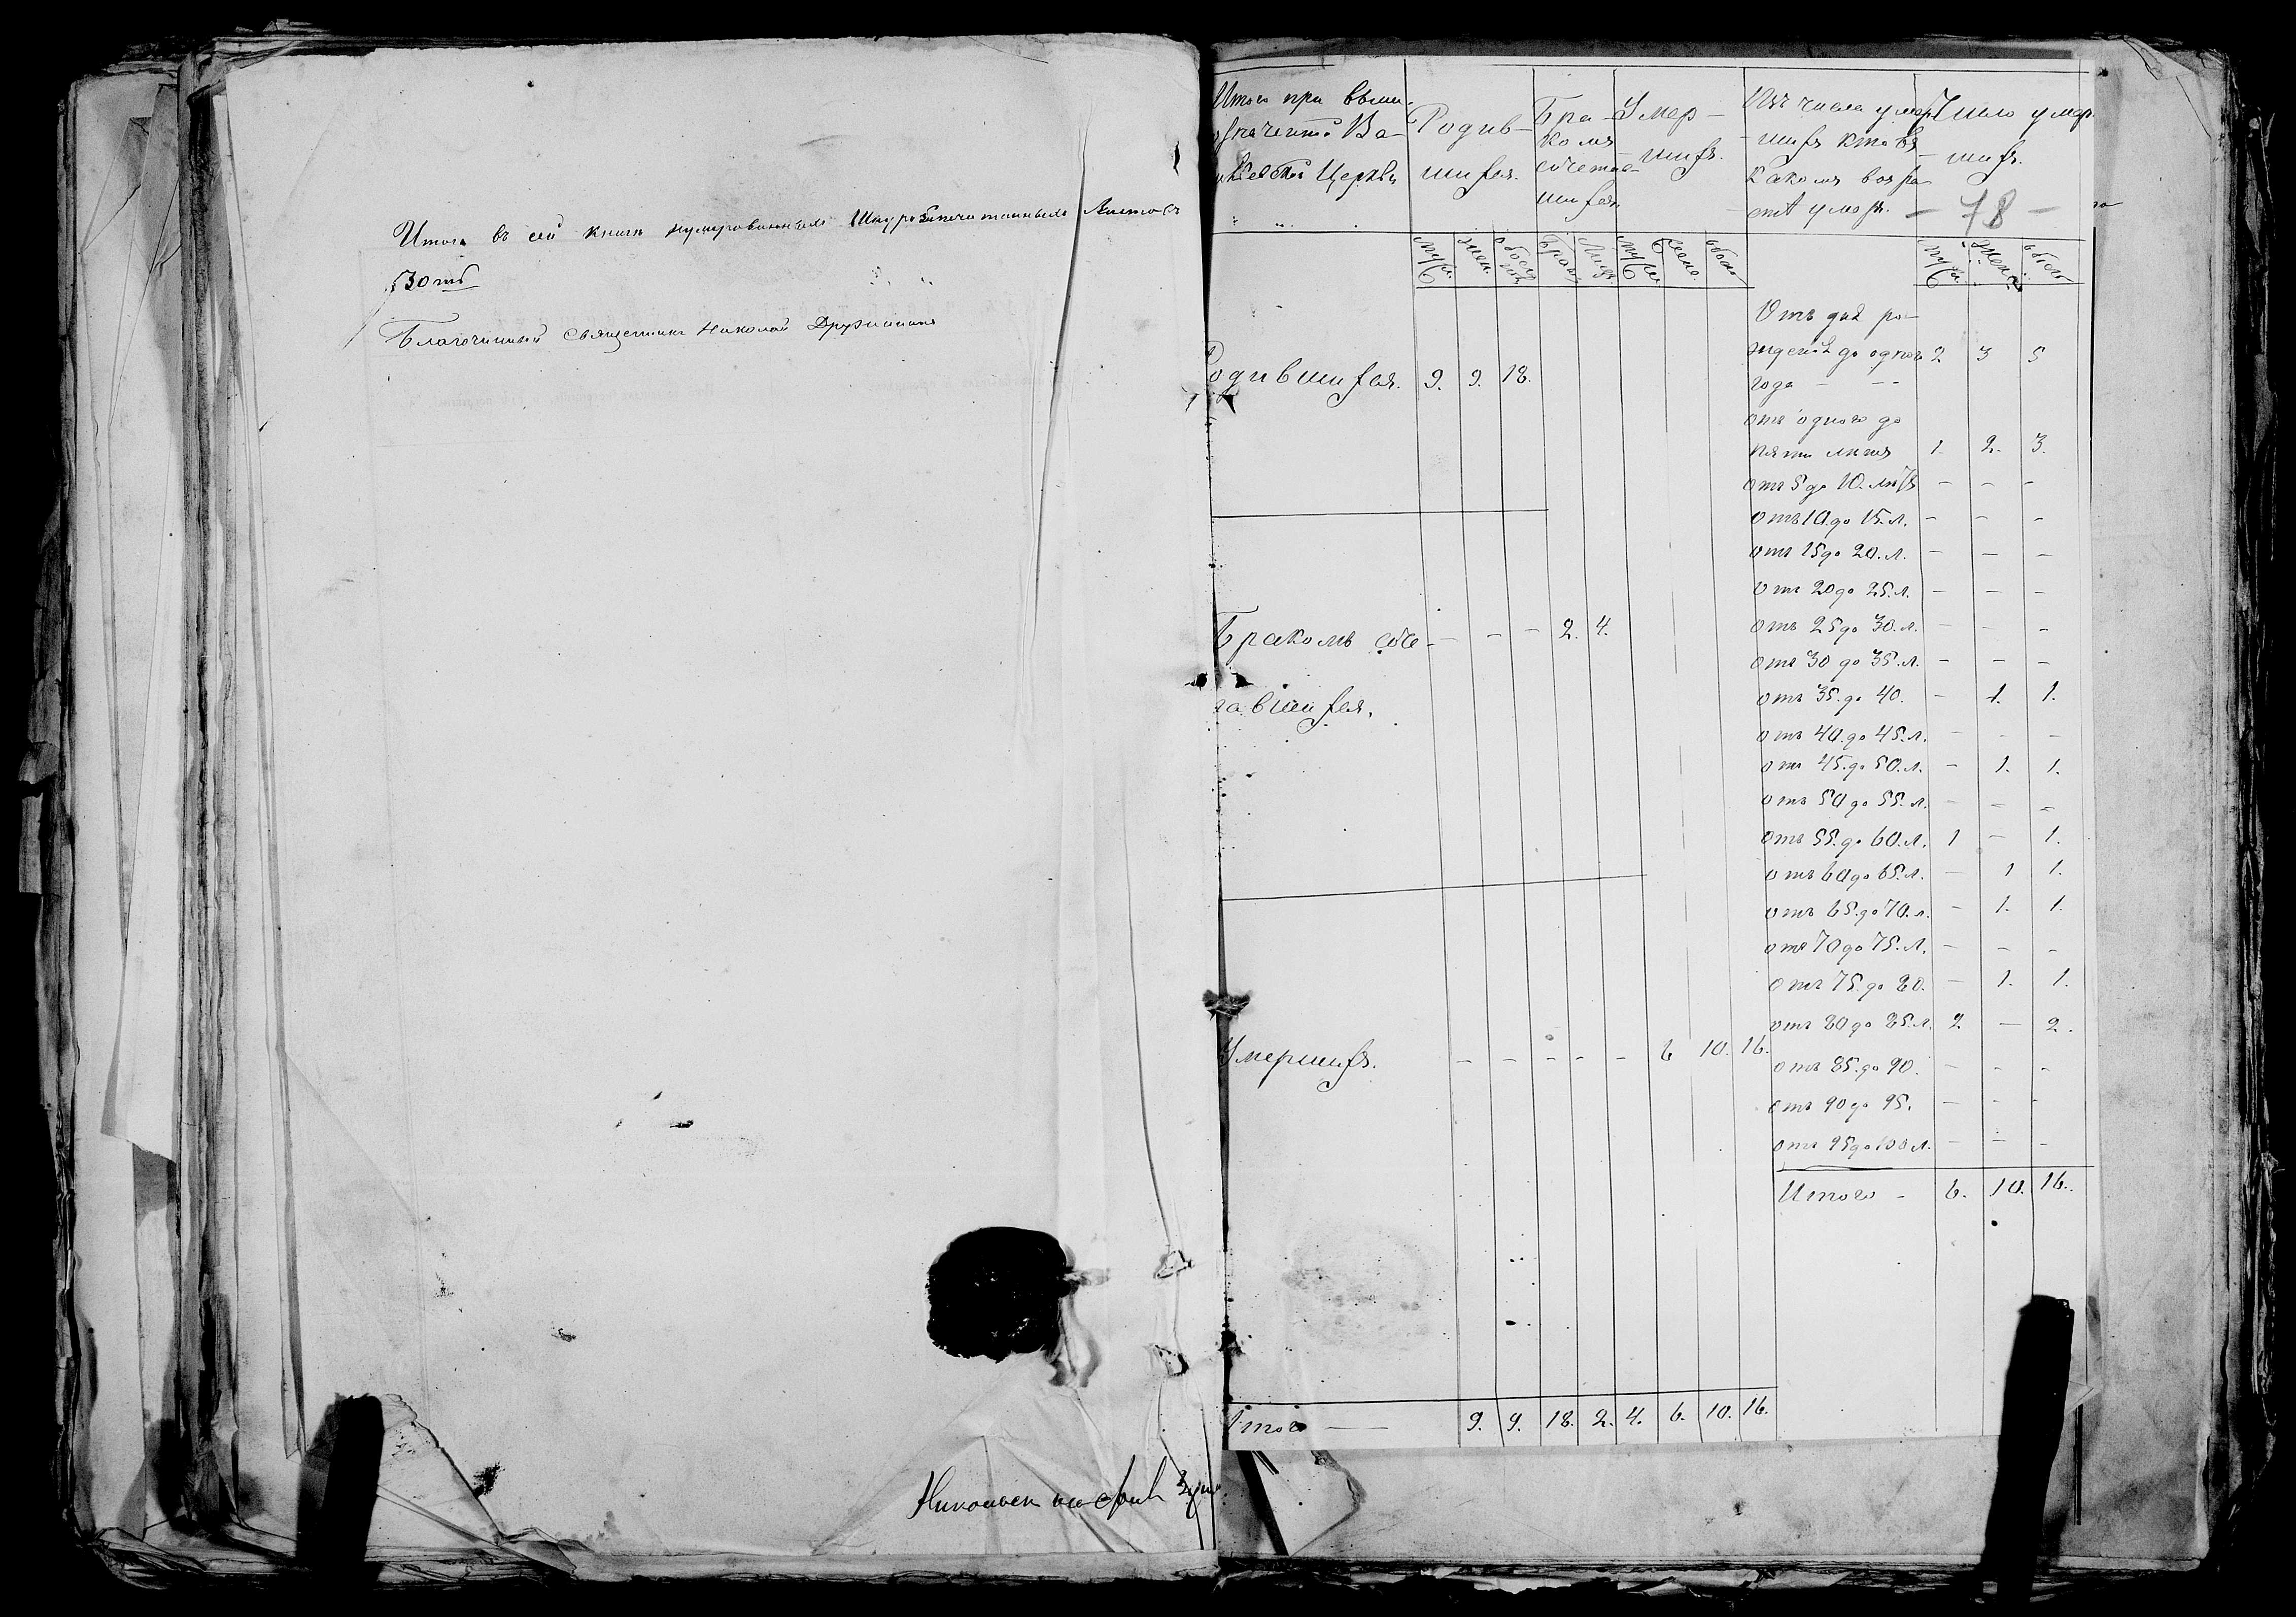 Итого въ сей книгѣ нумерованныхъ шнурозапечатанныхъ листовъ
Благочинный Священникъ Николай
Итого при выше-
Церкви
Родив-
шихся.
Бра-
комъ
сочетав-
шихся
Умер-
шихъ.
Изъ числа умер-
шихъ кто въ
какомъ возра-
стѣ умеръ.
Число умер-
шихъ.
— 78 —
муж. жен. обоего Бракъ муж. жен. обоего
муж. жен. обоего
Отъ дня ро-
жденія до одного 2 3 5
года — — —
отъ одного до
пяти лѣтъ 1. 2. 3.
отъ 5 до 10. лѣтъ — — —
отъ 10. до 15. л. — — —
отъ 15 до 20. л. — — —
отъ 20 до 25. л. — — —
отъ 25 до 30. л. — — —
отъ 30 до 35. л. — — —
отъ 35. до 40. — 1. 1.
отъ 40. до 45. л. — — —
отъ 45. до 50. л. — 1. 1.
отъ 50 до 55. л. — — —
отъ 55. до 60. л. 1 — 1.
отъ 60 до 65. л. — 1 1.
отъ 65. до 70. л. — 1. 1.
отъ 70 до 75. л. — — —
отъ 75. до 80. — 1. 1.
отъ 80 до 85. л. 2. — 2.
отъ 85. до 90. — — —
отъ 90 до 95. — — —
отъ 95 до 100 л. — — —
Итого — 6. 10. 16.
Родившихся. 9. 9. 18.
Бракомъ соче- — — — 2. 4.
тавшихся.
Умершихъ. — — — — — 6 10. 16.
Итого — — 9. 9. 18. 2. 4. 6. 10. 16.